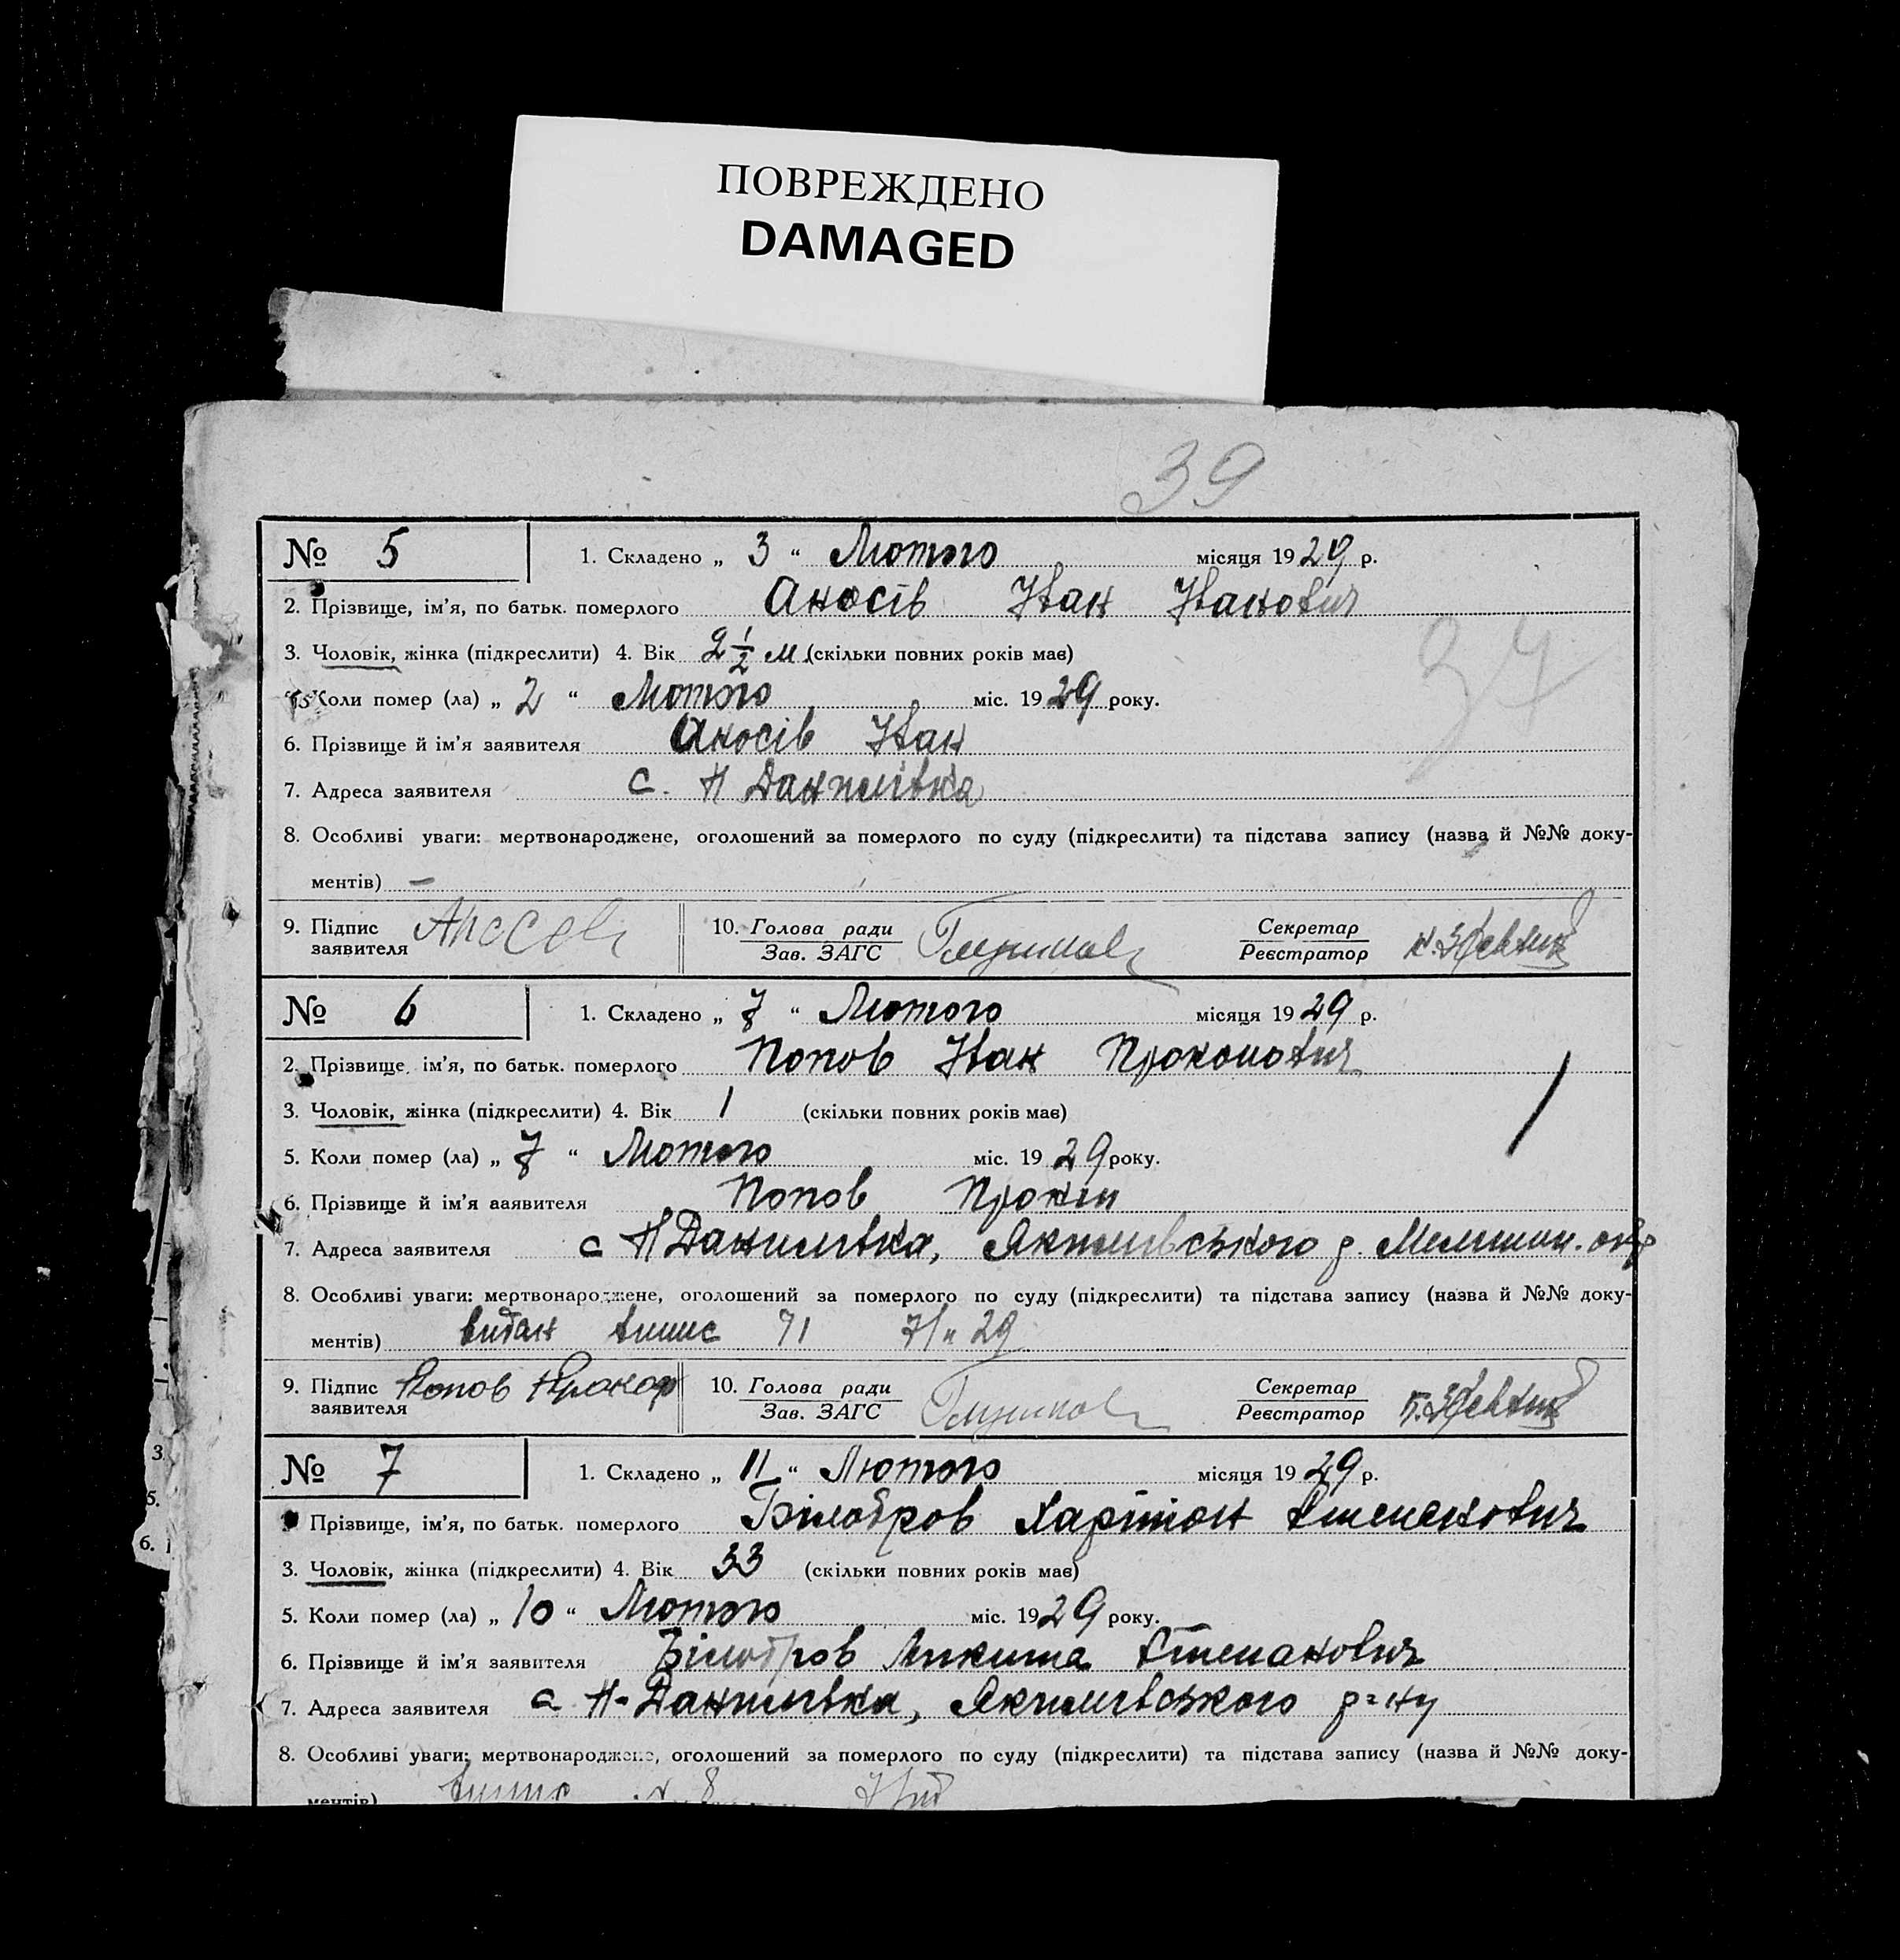 ПОВРЕЖДЕНО
DAMAGED
39
№ 5 1. Складено „ 3 “ Лютого місяця 1929 р.
2. Прізвище, ім’я, по батьк. померлого Аносів Іван Іванович
37
3. Чоловік, жінка (підкреслити) 4. Вік 2 1/2 м. (скільки повних років має)
5 Коли помер (ла) „ 2 “ Лютого міс. 1929 року.
6. Прізвище й ім’я заявителя Аносів Іван
7. Адреса заявителя с. Н Данилівка
8. Особливі уваги: мертвонароджене, оголошений за померлого по суду (підкреслити) та підстава запису (назва й №№ доку-
ментів) –
9. Підпис заявителя Аносев 10. Голова ради Зав. ЗАГС Секретар Реєстратор
№ 6 1. Складено „ 7 “ Лютого місяця 1929 р.
2. Прізвище, ім’я, по батьк. померлого Попов Іван Прокопович
3. Чоловік, жінка (підкреслити) 4. Вік 1 (скільки повних років має)
5. Коли помер (ла) „ 7 “ Лютого міс. 1929 року.
6. Прізвище й ім’я заявителя Попов Прокіп
7. Адреса заявителя с Н Данилівка, Якимівського р. Мелитоп. окр
8. Особливі уваги: мертвонароджене, оголошений за померлого по суду (підкреслити) та підстава запису (назва й №№ доку-
ментів) видан випис 71 7/II 29
9. Підпис заявителя Попов Прокоф 10. Голова ради Зав. ЗАГС Секретар Реєстратор
3
№ 7 1. Складено „ 11 “ Лютого місяця 1929 р.
5.
Прізвище, ім’я, по батьк. померлого Білобров Харітон Степанович
6.
3. Чоловік, жінка (підкреслити) 4. Вік 33 (скільки повних років має)
5. Коли помер (ла) „ 10 “ Лютого міс. 1929 року.
6. Прізвище й ім’я заявителя Білобров Микита Степанович
7. Адреса заявителя с Н-Данилівка, Якимівського р=ну
8. Особливі уваги: мертвонароджене, оголошений за померлого по суду (підкреслити) та підстава запису (назва й №№ доку-
ментів) випис 8